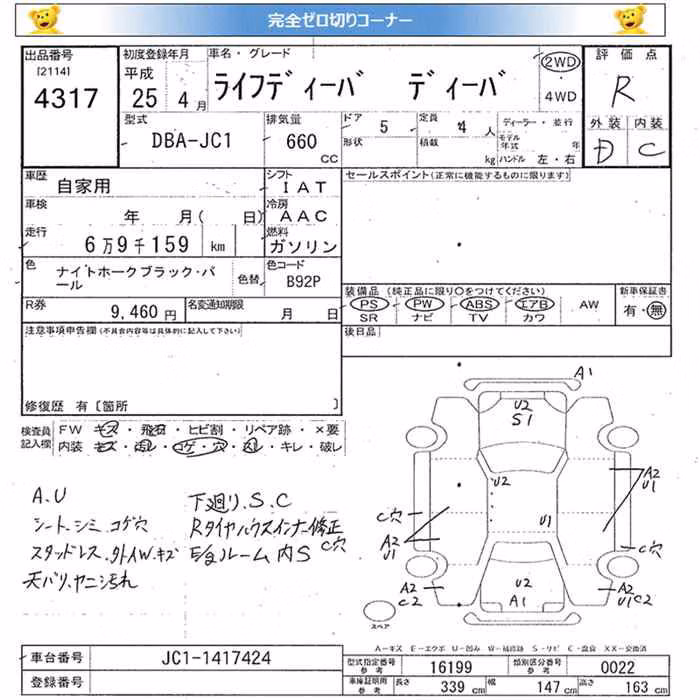 完全ゼロ切りコーナー
出品番号 初度登録年月 車名・グレード 評価点
[2114] 平成 ライフディーバ ディーバ 2WD R
4317 25 4月 4WD
外装 内装
型式 排気量 ドア 5 定員 4人 ディーラー・並行 D C
DBA-JC1 660 CC 形状 積載 kg モデル年式 年
ハンドル 左・右
車歴 自家用 シフト IAT セールスポイント(正常に機能するものに限ります)
車検 年 月( 日) 冷房 AAC
走行 6万9千159 km 燃料 ガソリン
色 ナイトホークブラック・パール 色替 色コード B92P
装備品 (純正品に限り○をつけてください) 新車保証書
PS PW ABS エアB AW 有・無
SR ナビ TV カワ
R券 9,460円 名変通知期限 月 日
後日品
注意事項申告欄(不具合内容等は具体的に記入して下さい)
修復歴 有〔箇所 〕
検査員記入欄 FW キズ・飛石・ヒビ割・リペア跡・×要
内装 キズ・汚レ・コゲ・穴・スレ・キレ・破レ
A.U
シート.シミ.コゲ穴
スタッドレス.外イW.キズ
天バリ.ヤニ汚れ
下廻り.S.C
Rタイヤハウスインナー修正
E/gルーム内S
C穴
A1
U2
S1
U2
U1
A2
U1
C穴
A2
U1
C穴
A2
C2
U2
A1
A2
U1C2
スペア
A-キズ E-エクボ U-凹み W-補修跡 S-サビ C-腐食 XX-交換済
車台番号 JC1-1417424
登録番号
型式指定番号 参考 16199 類別区分番号 参考 0022
車庫証明用 参考 長さ 339 cm 幅 147 cm 高さ 163 cm